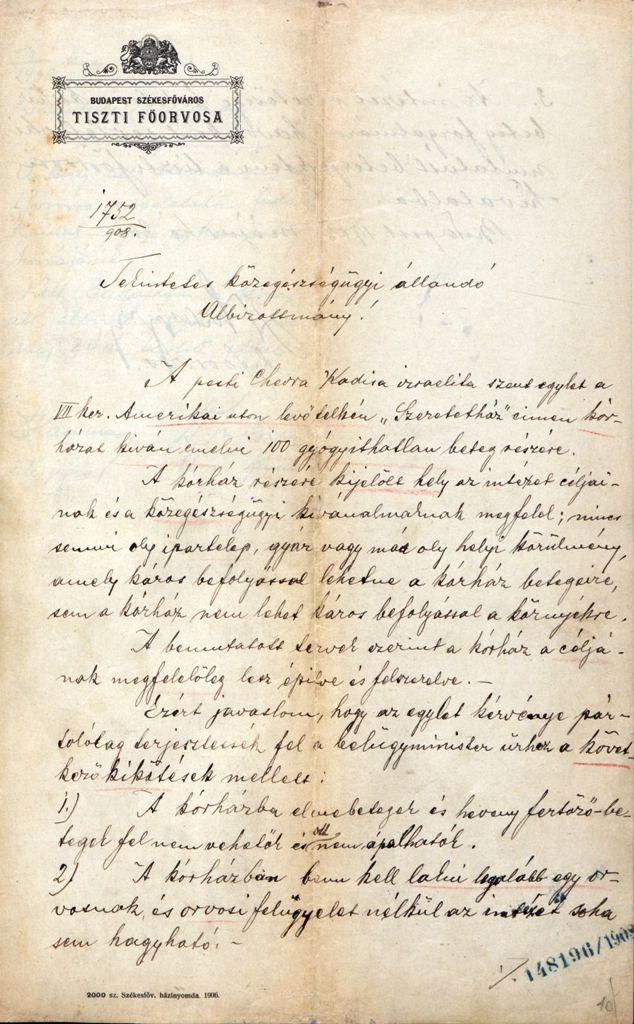 BUDAPEST SZÉKESFŐVÁROS
TISZTI FŐORVOSA
1752
908.
Tekintetes közegészségügyi állandó
Albizottmány!
A pesti Chevra Kadisa izraelita szent egylet a
VII ker. Amerikai uton levő telkén „Szeretetház" cimen kór-
házat kiván emelni 100 gyógyithatlan beteg részére.
A kórház részére kijelölt hely az intézet céljai-
nak és a közegészségügyi kivanalmaknak megfelel; nincs
semmi oly ipartelep, gyár vagy más oly helyi körülmény,
amely káros befolyással lehetne a kórház betegeire,
sem a kórház nem lehet káros befolyással a környékre.
A bemutatott tervek szerint a kórház a céljá-
nak megfelelőleg lesz épitve és felszerelve. —
Ezért javaslom, hogy az egylet kérvénye pár-
tolólag terjesztessék fel a belügyminister úrhoz a követ-
kező kikötések mellett:
1.) A kórházba elmebetegek és heveny fertőző be-
tegek fel nem vehetők és ott nem ápolhatók.
2) A kórházban benn kell lakni legalább egy or-
vosnak, és orvosi felügyelet nélkül az intézet soha
sem hagyható. —
./.
148196/1908
2000 sz. Székesföv. házinyomda. 1906.
10